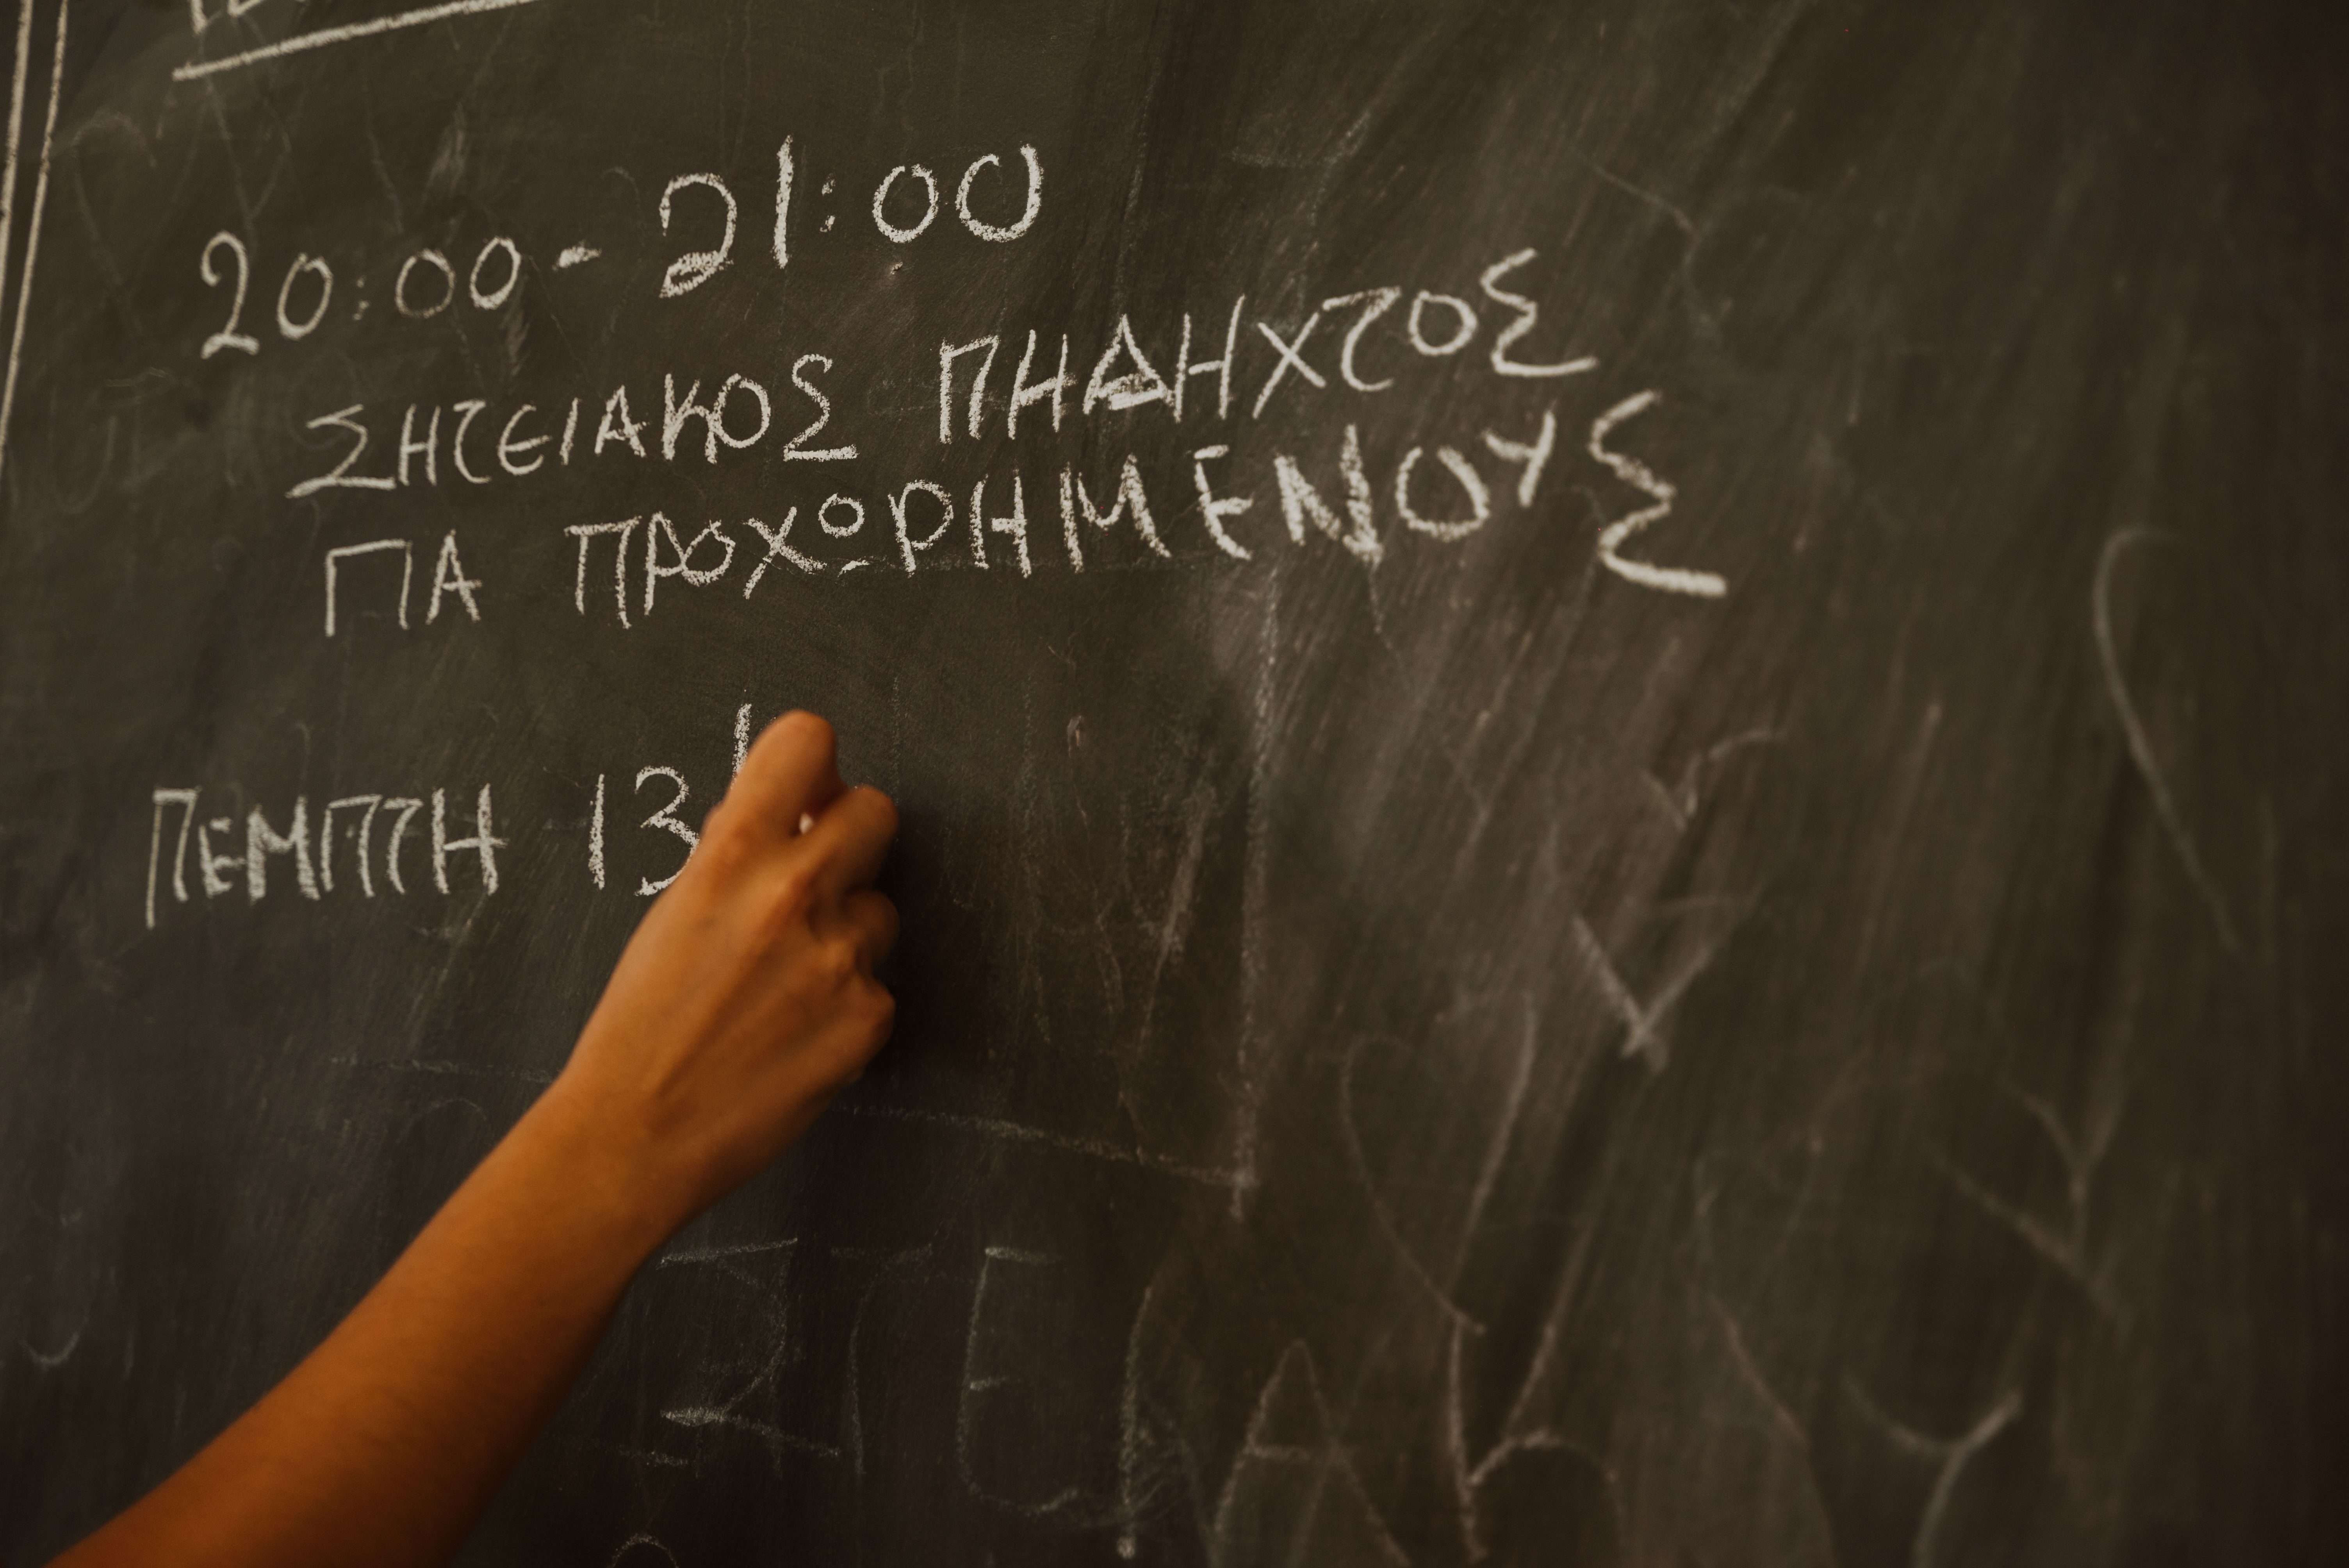 20:00 - 21:00
ΣΗΤΕΙΑΚΟΣ ΠΗΔΗΧΤΟΣ
ΓΙΑ ΠΡΟΧΩΡΗΜΕΝΟΥΣ
ΠΕΜΠΤΗ 13